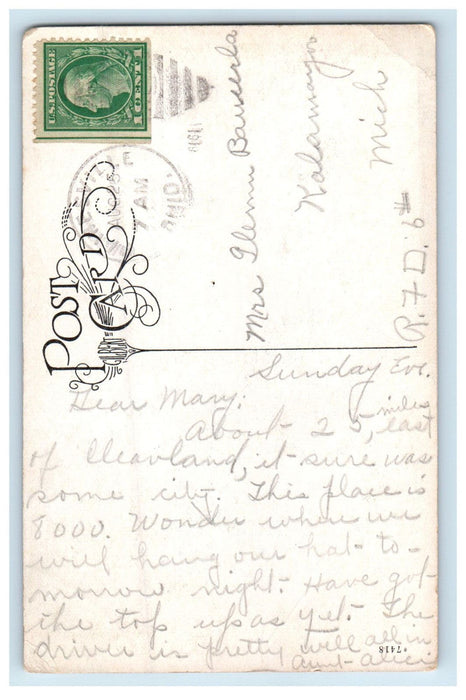 U.S. POSTAGE
1 CENT 1
AUG 25
7 AM
OHIO
POST
CARD
Mrs Glenn Bauserla
Kalamazoo
Mich
R. F D. 6#
Sunday Eve.
Dear Mary:
About 25 miles, east
of Cleavland, it sure was
some city. This place is
8000. Wonder where we
will hang our hat to-
morrow night. Have got
the top up as yet. The
driver is pretty well all in
Aunt Alice
7418